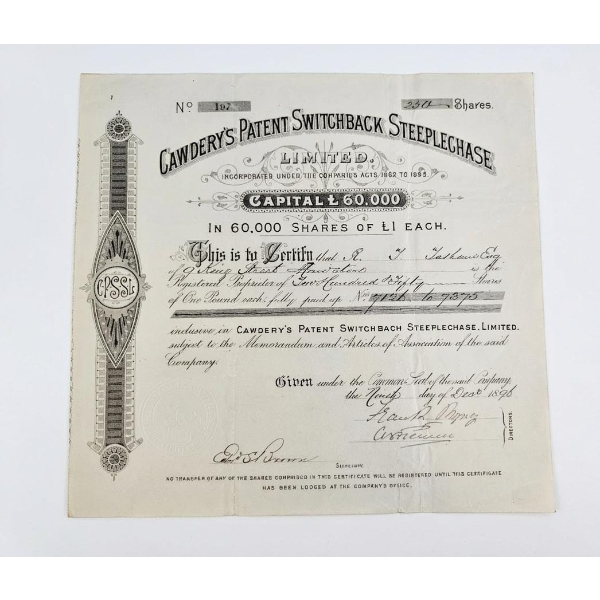 No 197 250 Shares.
CAWDERY'S PATENT SWITCHBACK STEEPLECHASE
LIMITED.
INCORPORATED UNDER THE COMPANIES ACTS, 1862 TO 1893.
CAPITAL £ 60,000
IN 60,000 SHARES OF £1 EACH.
This is to Certify that R. T.
of 9 King Street is the
Registered Proprietor of Two Hundred & Fifty Shares
of One Pound each, fully paid up Nos 7126 to 7375
inclusive in CAWDERY'S PATENT SWITCHBACH STEEPLECHASE, LIMITED.
subject to the Memorandum and Articles of Association of the said
Company.
Given under the Common Seal of the said Company,
the day of Decr 1896
Frank
DIRECTORS.
Edwd S. Brown
Secretary.
NO TRANSFER OF ANY OF THE SHARES COMPRISED IN THIS CERTIFICATE WILL BE REGISTERED UNTIL THIS CERTIFICATE
HAS BEEN LODGED AT THE COMPANY'S OFFICE.
C.P.S.S.L.